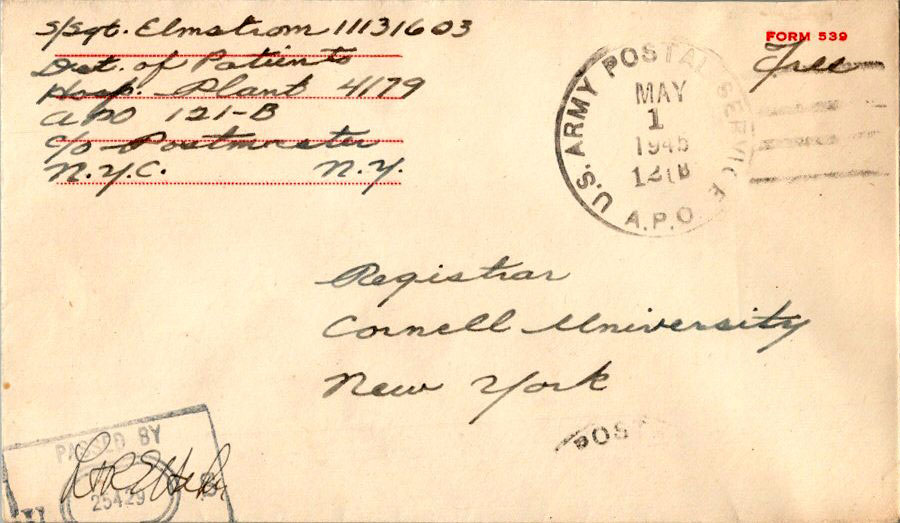 S/Sgt. Elmstrom 11131603
Det. of Patients
Hosp. Plant 4179
APO 121-B
c/o Postmaster
N.Y.C. N.Y.
FORM 539
Free
U.S. ARMY POSTAL SERVICE
MAY
1
1945
A.P.O.
Registrar
Cornell University
New York
POST
PASSED BY
25429